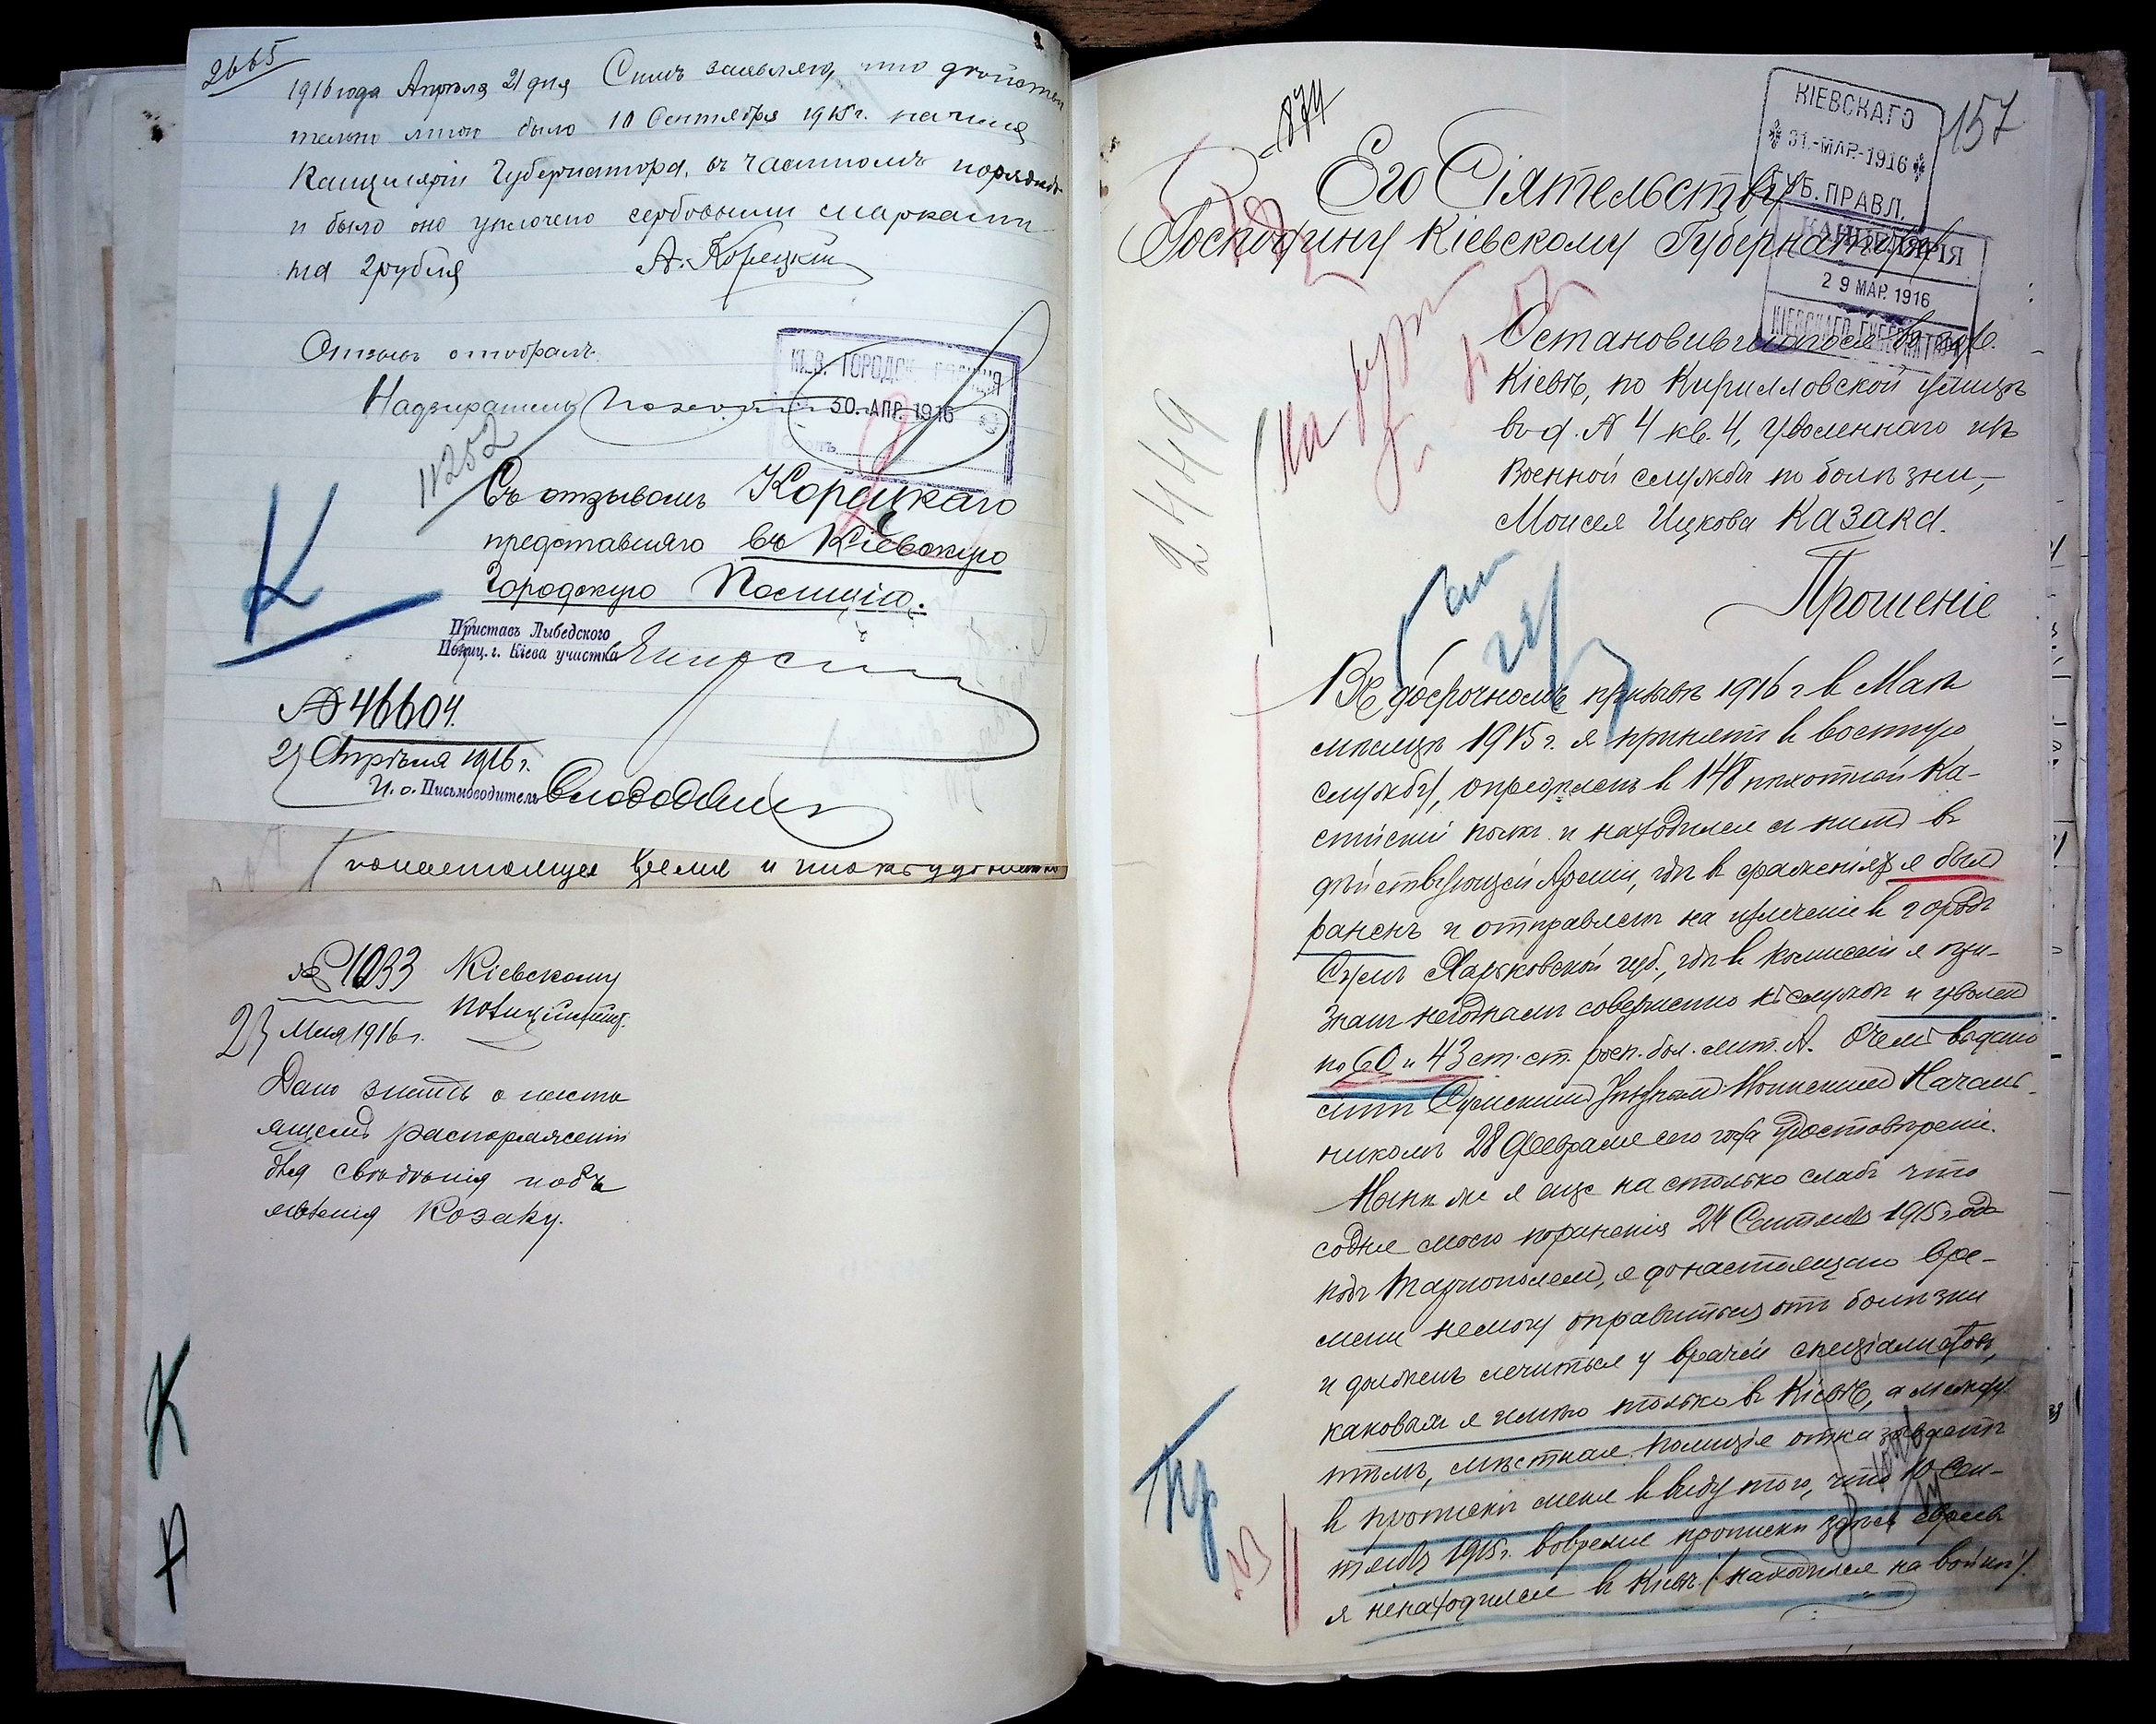 2665
1916 года Апрѣля 21 дня Симъ заявляю, что действи
тельно мною было 10 Сентября 1915 г.
Канцелярiи Губернатора, въ частномъ порядкѣ
и было оно уплочено гербовыми марками
на 2 рубля А. Корецкій
Отзывъ отобралъ
Надзиратель
КІЕВ. ГОРОДСК. ПОЛИЦІЯ
30. АПР. 1916
11252
Съ отзывомъ Корецкаго
представляю въ Кіевскую
Городскую Полицію.
К
Приставъ Лыбедского
Полиц. г. Кіева участка
№ 46604.
27 Апрѣля 1916 г.
И. о. Письмоводитель
настоящее время и
№ 1033 Кіевскому
Полиціймейст.
23 Мая 1916 г.
Дано знать о насто
ящемъ распоряженіи
для свѣдѣнія и объ
явленія Козаку.
К
157
КІЕВСКАГО
31.-МАР.-1916
ГУБ. ПРАВЛ.
Его Сіятельству
Господину Кіевскому Губернатору
КАНЦЕЛЯРІЯ
29 МАР. 1916
КІЕВСКАГО ГУБЕРНАТОРА
2449
Остановившагося въ гор.
Кіевѣ, по Кирилловской улицѣ
въ д. № 4 кв. 4, уволеннаго изъ
Военной службы по болѣзни,–
Моисея Ицкова Казака.
Прошеніе
Въ досрочномъ призывѣ 1916 г в Маѣ
мѣсяцѣ 1915 г. я принятъ в военную
службу, опредѣленъ в 148 пѣхотный Ка-
спійскій полкъ и находился с нимъ в
дѣйствующей Арміи, гдѣ в сраженіях я былъ
раненъ и отправленъ на излѣченіе в городъ
Сумы Харьковской губ., гдѣ в комиссіи я при-
знанъ негоднымъ совершенно къ службѣ и уволенъ
по 60 и 43 ст. ст. росп. бол. лит. А. О чемъ выдано
мнѣ Сумскимъ Уѣзднымъ Воинскимъ Началь-
никомъ 28 Февраля сего года удостовѣреніе.
Нынѣ же я еще на столько слабъ что
со дня моего пораненія 24 Сентября 1915 года
подъ Тарнополемъ, я до настоящаго вре-
мени не могу оправиться отъ болѣзни
и долженъ лечиться у врачей спеціалистовъ,
каковых я имѣю только в Кіевѣ, а между
тѣмъ, мѣстная полиція отказываетъ
в пропискѣ меня в виду того, что 10 Сен-
тября 1915 г. во время прописки здѣсь евреевъ
я не находился в Кіевѣ (находился на войнѣ).